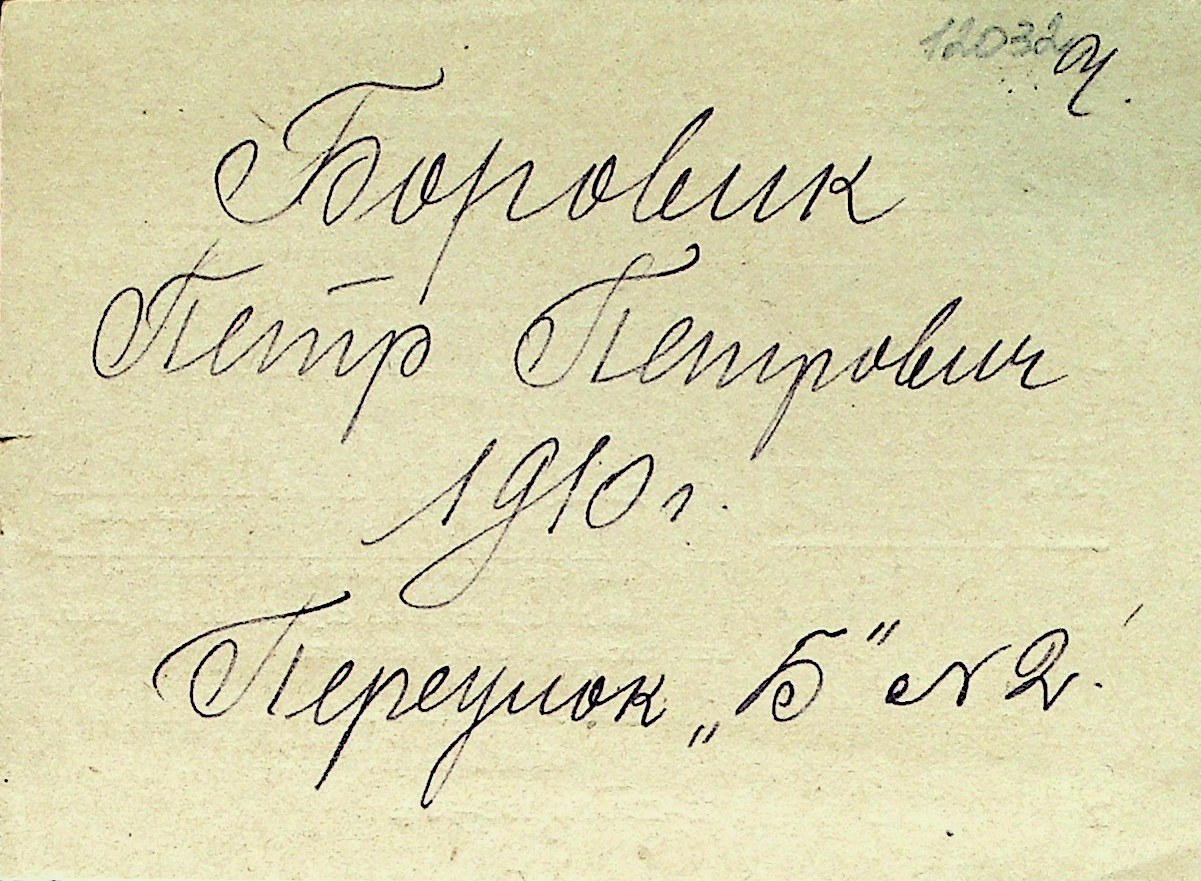 12032 ч.
Боровик
Петр Петрович
1910 г.
Переулок „Б“ № 2.